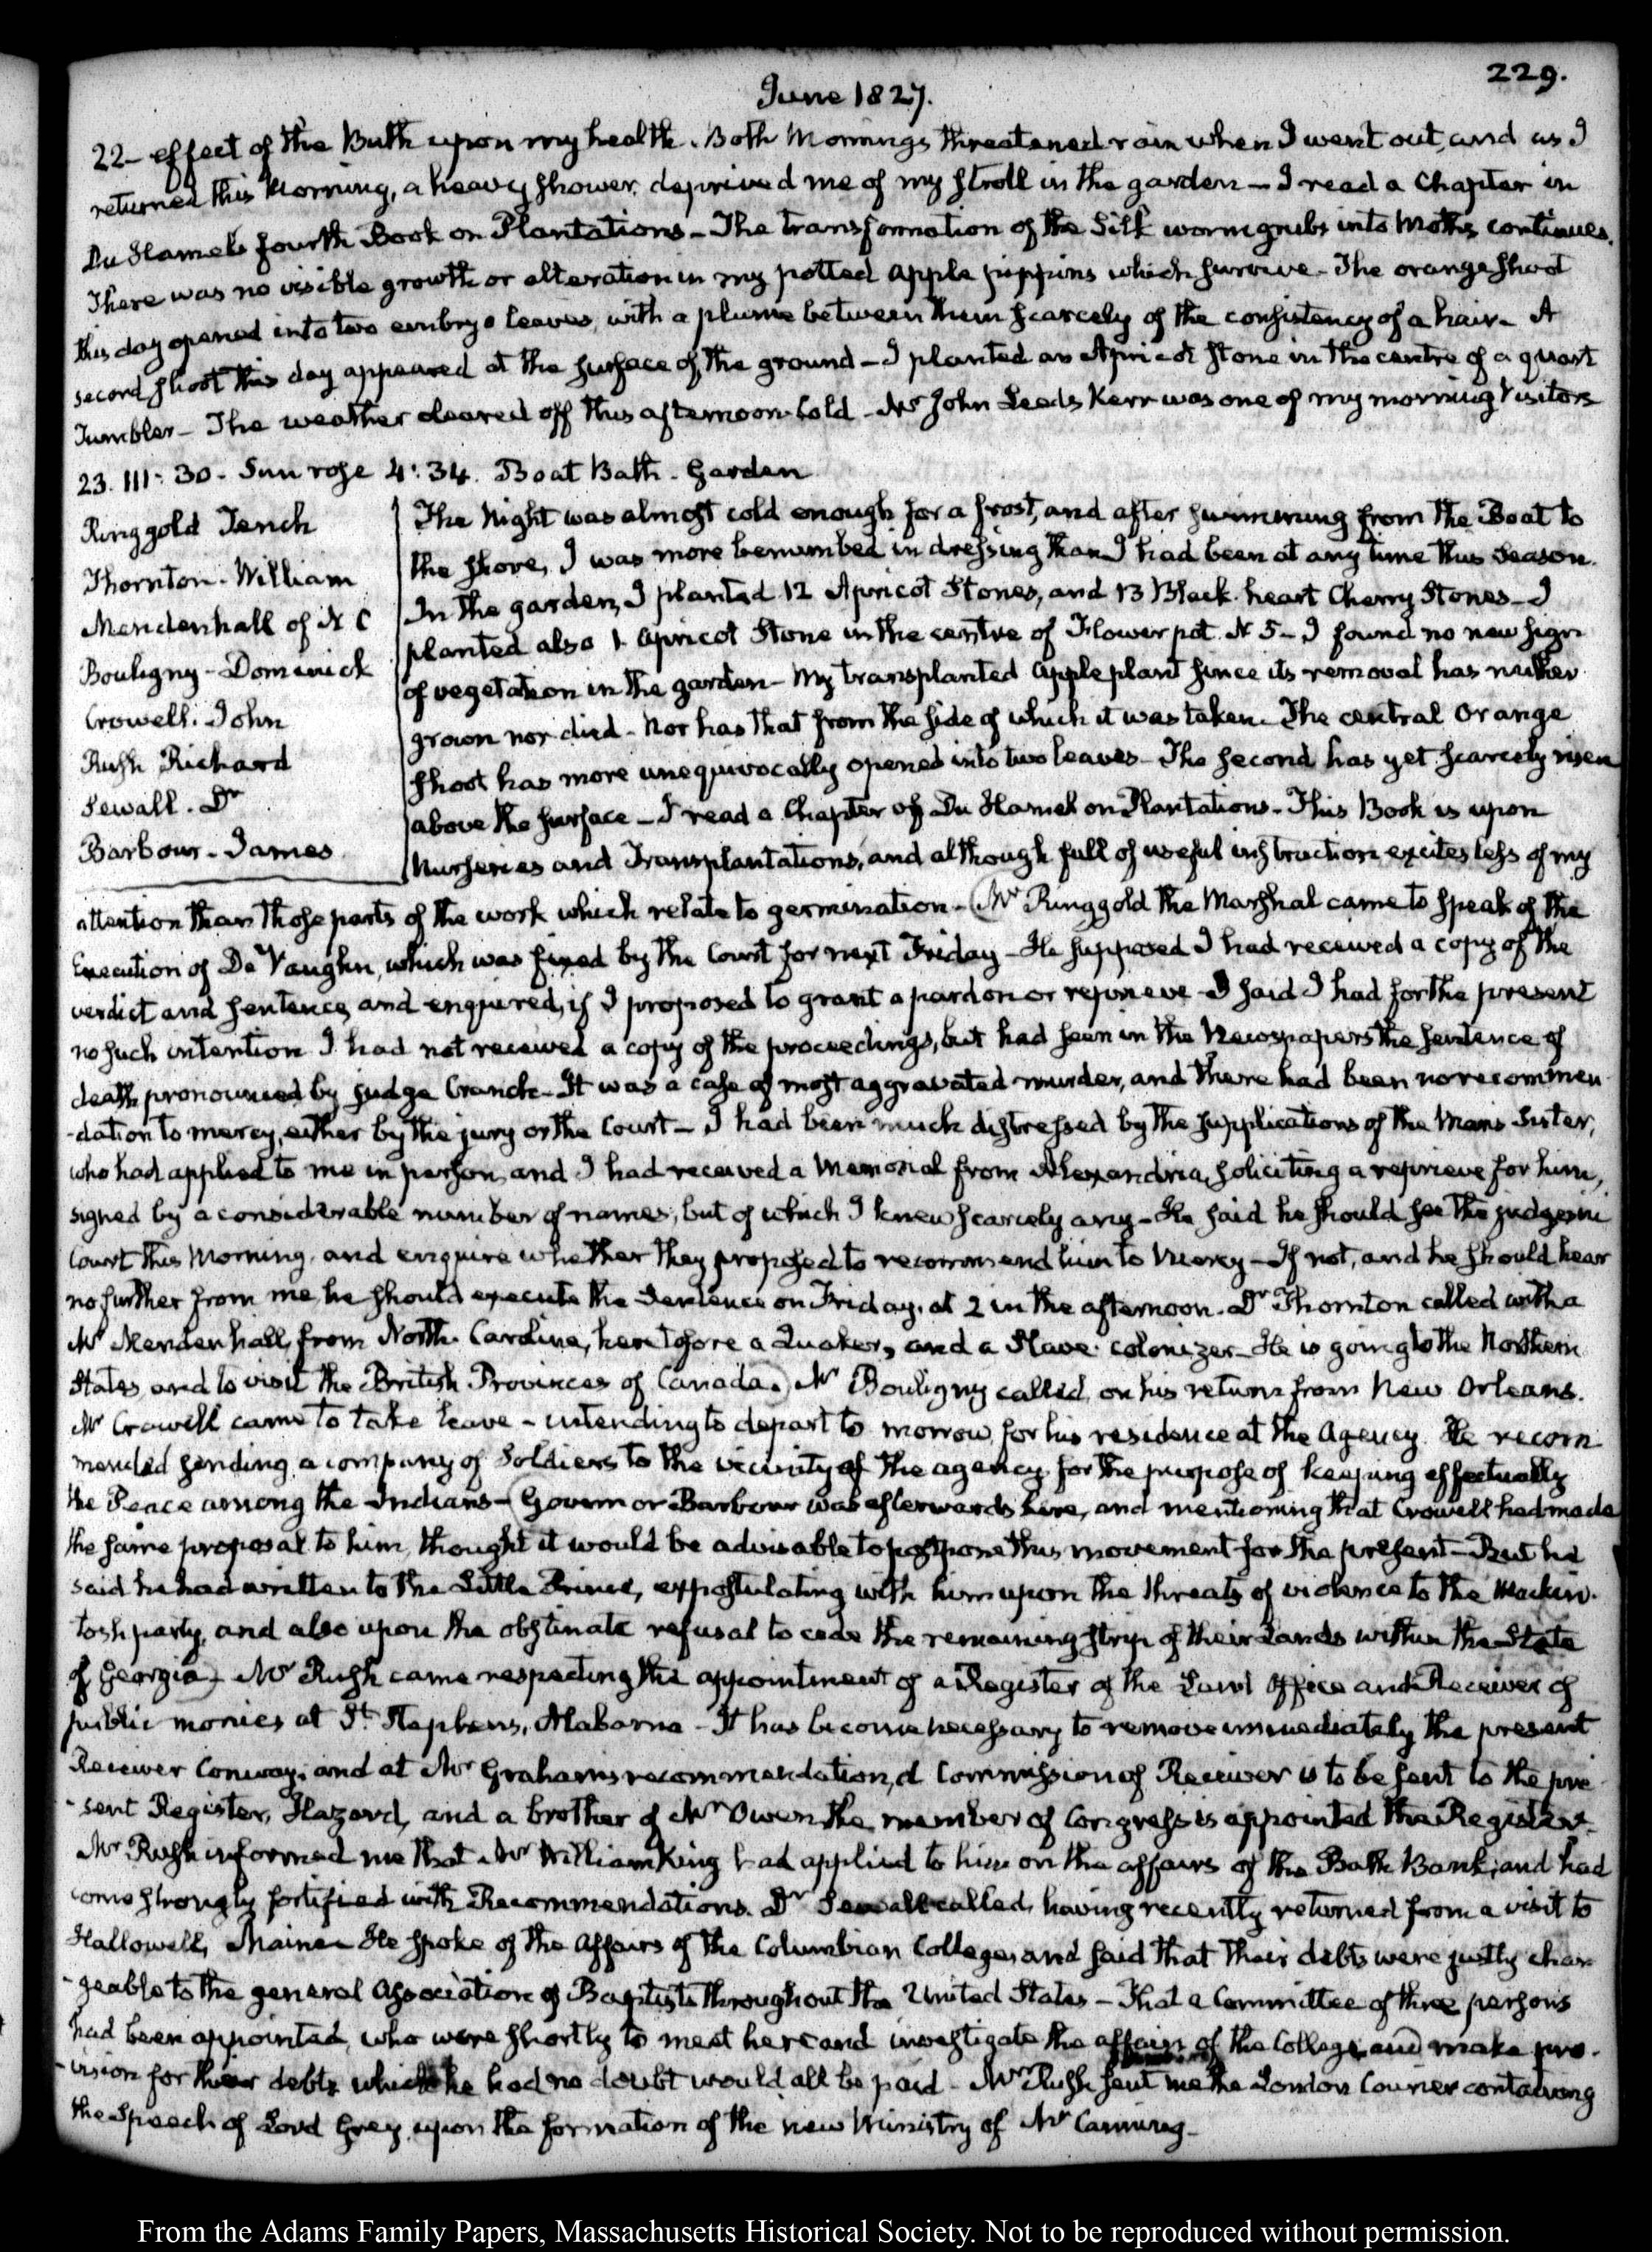 229.
June 1827.
22- effect of the Bath upon my health. Both Mornings threatened rain when I went out, and as I
returned this Morning, a heavy shower, deprived me of my stroll in the garden — I read a Chapter in
Du Hamel's fourth Book on Plantations — The transformation of the Silk worm grubs into Moths continues.
There was no visible growth or alteration in my potted apple pippins which survive — The orange shoot
this day opened into two embryo leaves, with a plume between them scarcely of the consistency of a hair — A
second shoot this day appeared at the surface of the ground — I planted an Apricot stone in the centre of a quart
Tumbler — The weather cleared off this afternoon cold — Mr John Leeds Kerr was one of my morning Visitors
23. III: 30. Sun rose 4:34. Boat Bath. Garden
Ringgold Tench
Thornton. William
Mendenhall of N C
Bouligny - Dominick
Crowell. John
Rush Richard
Sewall. Dr
Barbour. James
The Night was almost cold enough for a frost, and after swimming from the Boat to
the shore, I was more benumbed in dressing than I had been at any time this Season.
In the garden, I planted 12 Apricot Stones, and 13 Black heart Cherry Stones — I
planted also 1 Apricot Stone in the centre of Flower pot N 5 — I found no new sign
of vegetation in the garden — My transplanted apple plant since its removal has neither
grown nor died — Nor has that from the side of which it was taken. The central Orange
shoot has more unequivocally opened into two leaves — The second has yet scarcely risen
above the surface — I read a Chapter of Du Hamel on Plantations — This Book is upon
Nurseries and Transplantations, and although full of useful instruction excites less of my
attention than those parts of the work which relate to germination — Mr Ringgold the Marshal came to speak of the
Execution of De Vaughn, which was fixed by the Court for next Friday — He supposed I had received a copy of the
verdict and sentence, and enquired, if I proposed to grant a pardon or reprieve — I said I had for the present
no such intention I had not received a copy of the proceedings, but had seen in the Newspapers the sentence of
death pronounced by judge Cranch — It was a case of most aggravated murder, and there had been no recommen
-dation to mercy, either by the jury or the Court — I had been much distressed by the supplications of the Mans Sister,
who had applied to me in person, and I had received a Memorial from Alexandria, soliciting a reprieve for him,
signed by a considerable number of names, but of which I knew scarcely any — He said he should see the judges in
Court this Morning, and enquire whether they proposed to recommend him to Mercy — If not, and he should hear
no further from me, he should execute the Sentence on Friday, at 2 in the afternoon. Dr Thornton called with a
Mr Mendenhall, from North Carolina, heretofore a Quaker, and a Slave colonizer — He is going to the Northern
States, and to visit the British Provinces of Canada. Mr Bouligny called, on his return from New Orleans.
Mr Crowell came to take leave — intending to depart to morrow, for his residence at the Agency. He recom
mended sending a company of Soldiers to the vicinity of the agency for the purpose of keeping effectually
the Peace among the Indians — Governor Barbour was afterwards here, and mentioning that Crowell had made
the same proposal to him, thought it would be advisable to postpone this movement for the present — But he
said he had written to the Little Prince, expostulating with him upon the threats of violence to the Mackin-
tosh party, and also upon the obstinate refusal to cede the remaining strip of their Lands within the State
of Georgia — Mr Rush came respecting the appointment of a Register of the Land Office and Receiver of
public monies at St. Stephens, Alabama — It has become necessary to remove immediately the present
Receiver Conway, and at Mr Graham's recommendation, a Commission of Receiver is to be sent to the pre
-sent Register, Hazard, and a brother of Mr Owen the member of Congress is appointed the Register.
Mr Rush informed me that Mr William King had applied to him on the affairs of the Bath Bank, and had
come strongly fortified with Recommendations. Dr Sewall called, having recently returned from a visit to
Hallowell, Maine — He spoke of the affairs of the Columbian College, and said that their debts were justly char
-geable to the general Association of Baptists throughout the United States — That a Committee of three persons
had been appointed, who were shortly to meet here and investigate the affairs of the College, and make pro-
-vision for their debts which he had no doubt would all be paid — Mr Rush sent me the London Courier containing
the Speech of Lord Grey upon the formation of the new Ministry of Mr Canning —
From the Adams Family Papers, Massachusetts Historical Society. Not to be reproduced without permission.